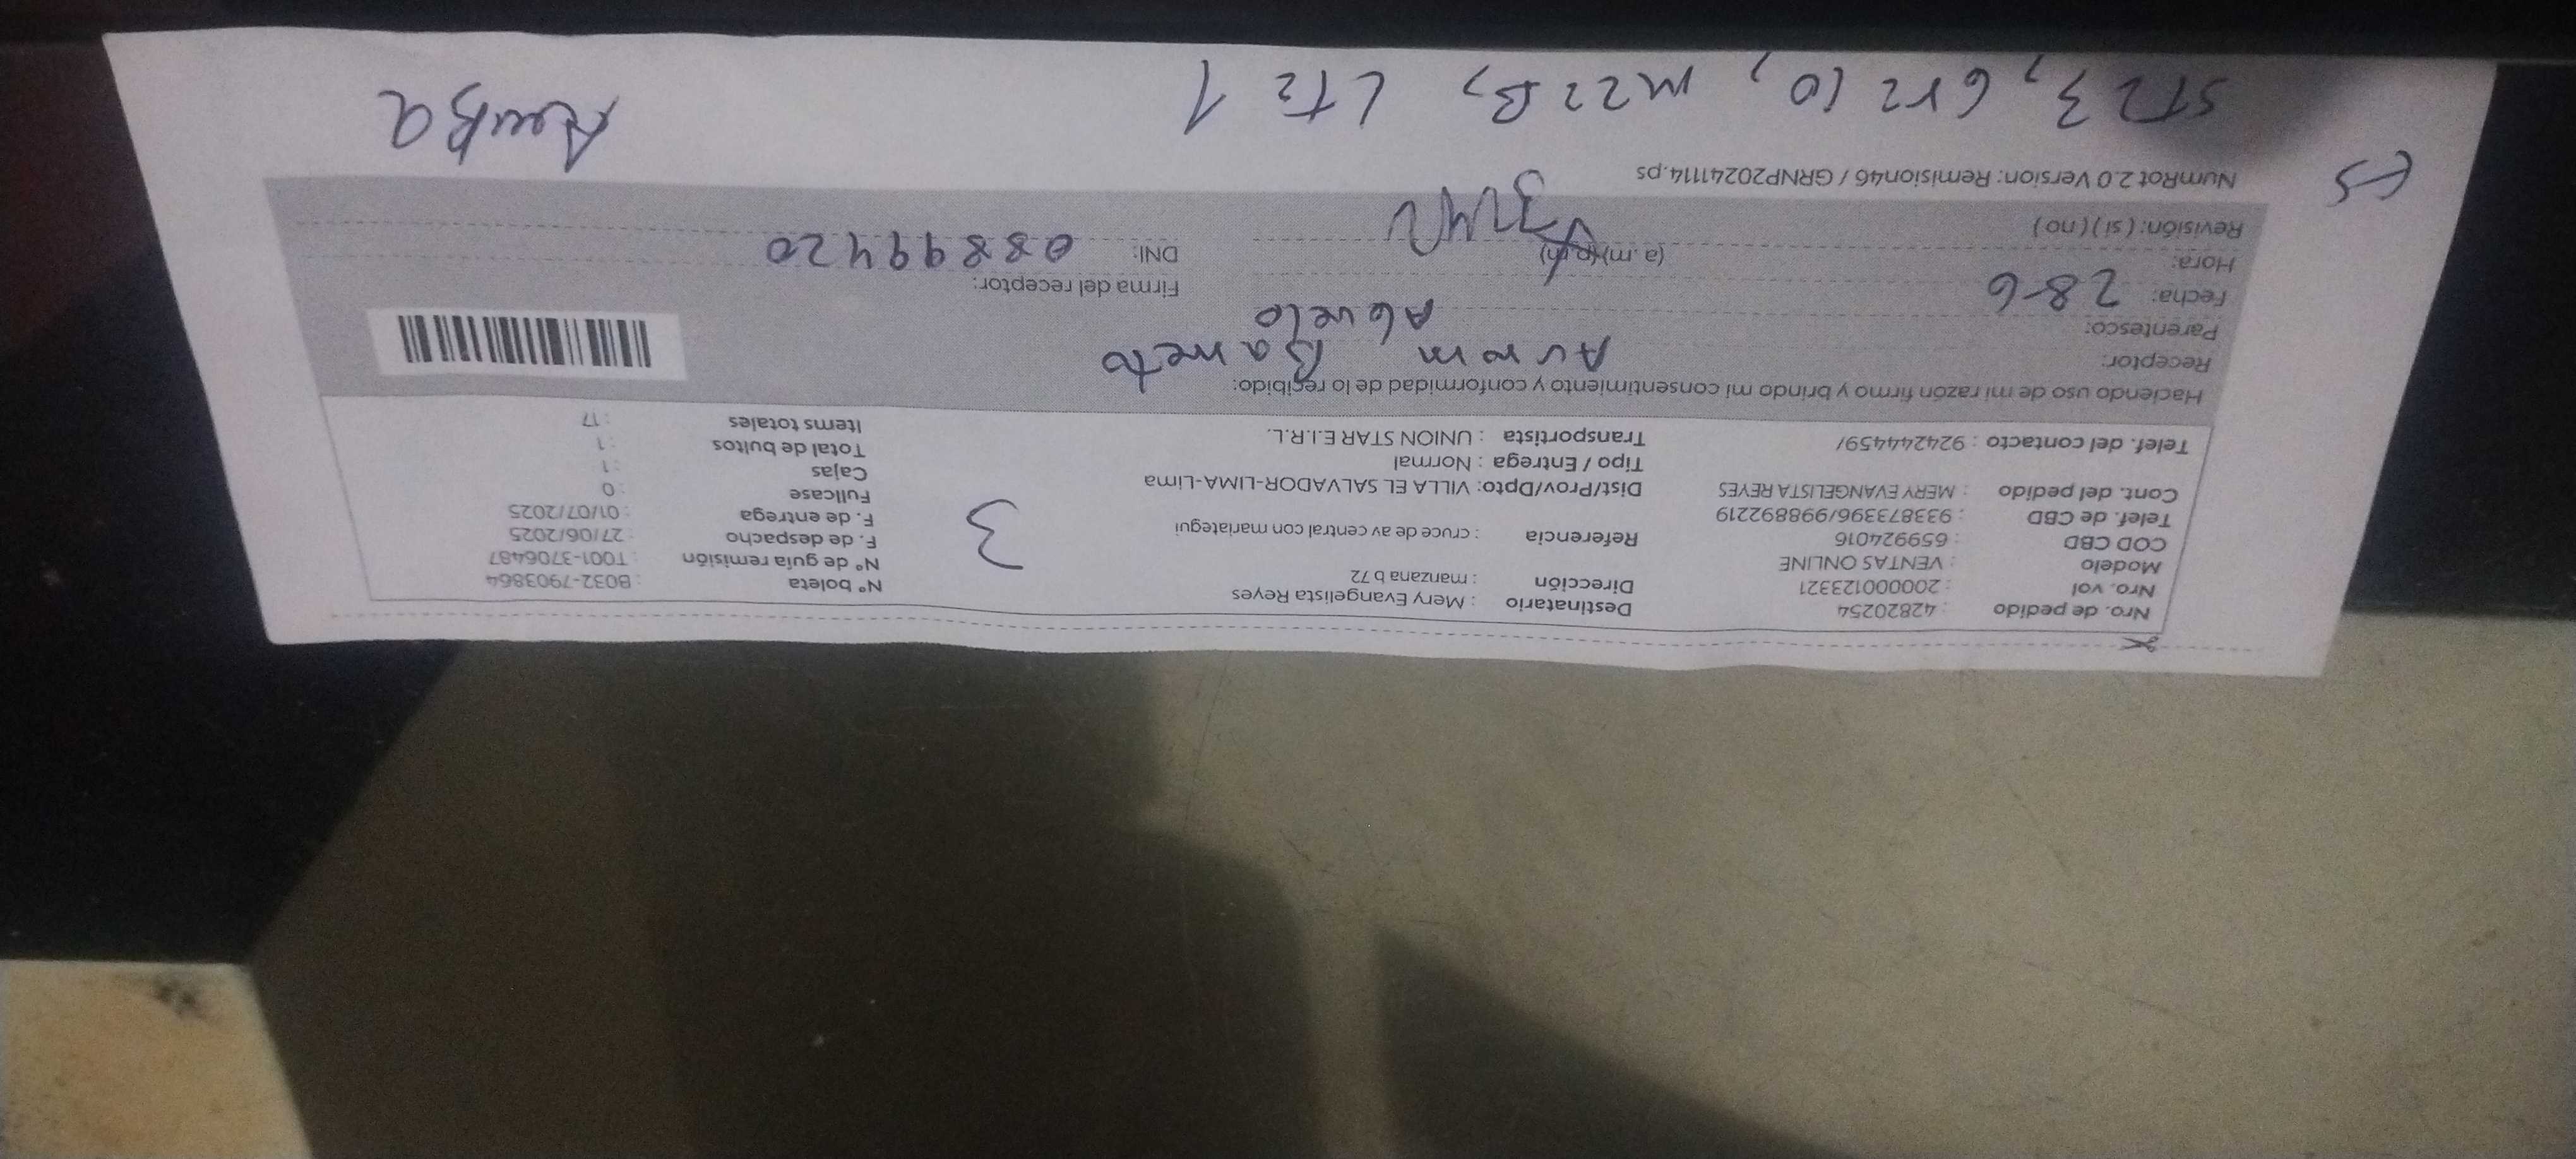 Nro. de pedido : 42820254
Nro. vol : 2000000123321
Modelo : VENTAS ONLINE
COD CBD : 659924016
Telef. de CBD : 933873396/998892219
Cont. del pedido : MERY EVANGELISTA REYES
Telef. del contacto : 924244459/
Destinatario : Mery Evangelista Reyes
Dirección : manzana b 72
Referencia : cruce de av central con mariategui
Dist/Prov/Dpto: VILLA EL SALVADOR-LIMA-Lima
Tipo / Entrega : Normal
Transportista : UNION STAR E.I.R.L.
3
N° boleta : B032-7903864
N° de guía remisión : T001-3706487
F. de despacho : 27/06/2025
F. de entrega : 01/07/2025
Fullcase : 0
Cajas : 1
Total de bultos : 1
Items totales : 17
Haciendo uso de mi razón firmo y brindo mi consentimiento y conformidad de lo recibido:
Receptor:
Parentesco: Abuelo
Fecha: 28-6
Hora: (a.m)(p.m)
Revisión: ( si ) ( no )
Firma del receptor:
DNI: 08899420
NumRot 2.0 Version: Remision46 / GRNP20241114.ps